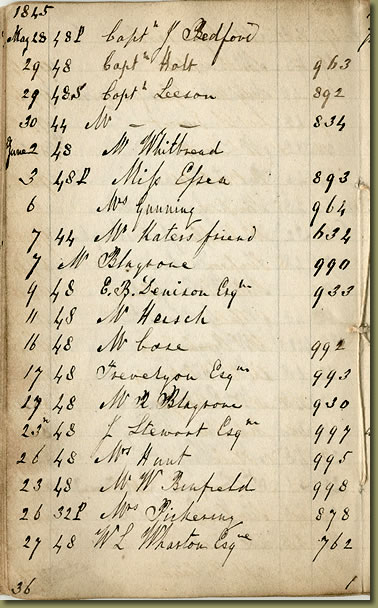 1845
May 28 48P Capt.n J Bedford
29 48 Capt.n Holt 963
29 48S Capt.n Leeson 892
30 44 Mr — — 834
June 2 48 Mr Whitbread
3 48P Miss Essex 893
6 Mrs Gunning 964
7 44 Mr Katers friend 632
7 Mr Blagrove 990
9 48 E.B. Denison Esqre 933
11 48 Mr Hersch
16 48 Mr Case 992
17 48 Trevelyon Esqre 993
48 Mr R Blagrove 930
23 48 J Stewart Esqre 997
26 48 Mrs Hunt 995
23 48 Mr W Binfield 998
26 32P Mrs Pickering 878
27 48 W L Wharton Esqre 762
36 1